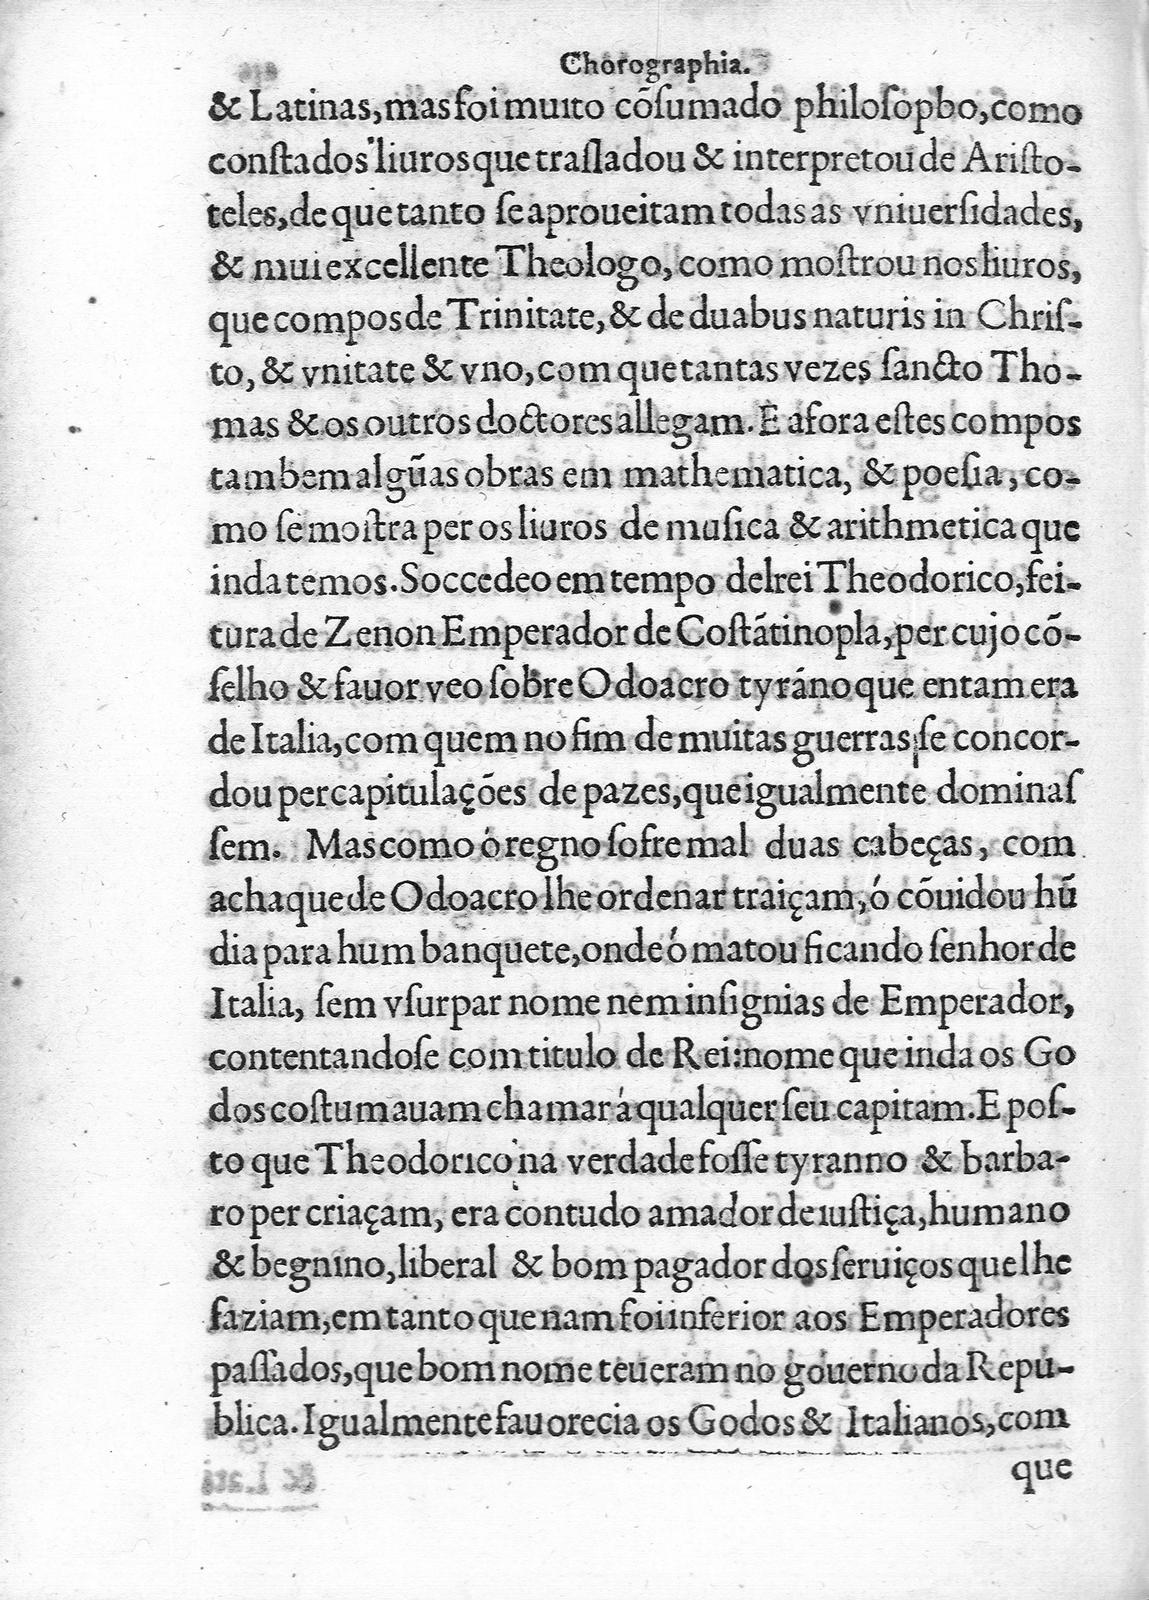 Chorographia.
& Latinas, mas foi muito cõſumado philoſopho, como
conſta dos liuros que traſladou & interpretou de Ariſto-
teles, de que tanto ſe aproueitam todas as vniuerſidades,
& mui excellente Theologo, como moſtrou nos liuros,
que compos de Trinitate, & de duabus naturis in Chriſ-
to, & vnitate & vno, com que tantas vezes ſancto Tho-
mas & os outros doctores allegam. E afora eſtes compos
tambem algũas obras em mathematica, & poeſia, co-
mo ſe moſtra per os liuros de muſica & arithmetica que
inda temos. Soccedeo em tempo delrei Theodorico, fei-
tura de Zenon Emperador de Coſtãtinopla, per cujo cõ-
ſelho & fauor veo ſobre Odoacro tyráno que entam era
de Italia, com quem no fim de muitas guerras ſe concor-
dou per capitulações de pazes, que igualmente dominaſ
ſem. Mas como ó regno ſofre mal duas cabeças, com
achaque de Odoacro lhe ordenar traiçam, ó cõuidou hũ
dia para hum banquete, onde ó matou ficando ſenhor de
Italia, ſem vſurpar nome nem inſignias de Emperador,
contentandoſe com titulo de Rei: nome que inda os Go
dos coſtumauam chamar á qualquer ſeu capitam. E poſ-
to que Theodorico na verdade foſſe tyranno & barba-
ro per criaçam, era contudo amador de iuſtiça, humano
& begnino, liberal & bom pagador dos ſeruiços que lhe
faziam, em tanto que nam foi inferior aos Emperadores
paſſados, que bom nome teueram no gouerno da Repu-
blica. Igualmente fauorecia os Godos & Italianos, com
que